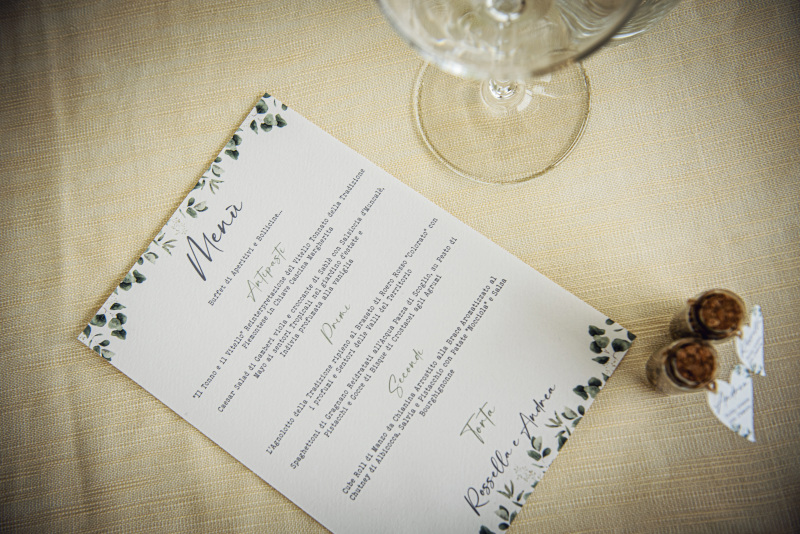 Menù
Buffet di Aperitivi e Bollicine...
Antipasti
"Il Tonno e il Vitello" Reinterpretazione del Vitello Tonnato della Tradizione
Piemontese in Chiave Cascina Margherita
Caesar Salad di Gamberi viola e croccante di Sablè con Salsiccia d'Muncalè,
Mayo ai sentori Tropicali nel giardino d'estate e
Indivia profumata alla vaniglia
Primi
L'Agnolotto della Tradizione ripieno al Brasato di Roero Rosso "Colorato" con
i profumi e Sentori delle Valli del Territorio
Spaghettoni di Gragnano Reidratati all'Acqua Pazza di Scoglio, su Pesto di
Pistacchi e Gocce di Bisque di Crostacei agli Agrumi
Secondi
Cube Roll di Manzo da Chianina Arrostito alla Brace Aromatizzato al
Chutney di Albicocca, Salvia e Pistacchio con Patate "Nocciola" e Salsa
Bourghignonne
Torta
Rossella e Andrea